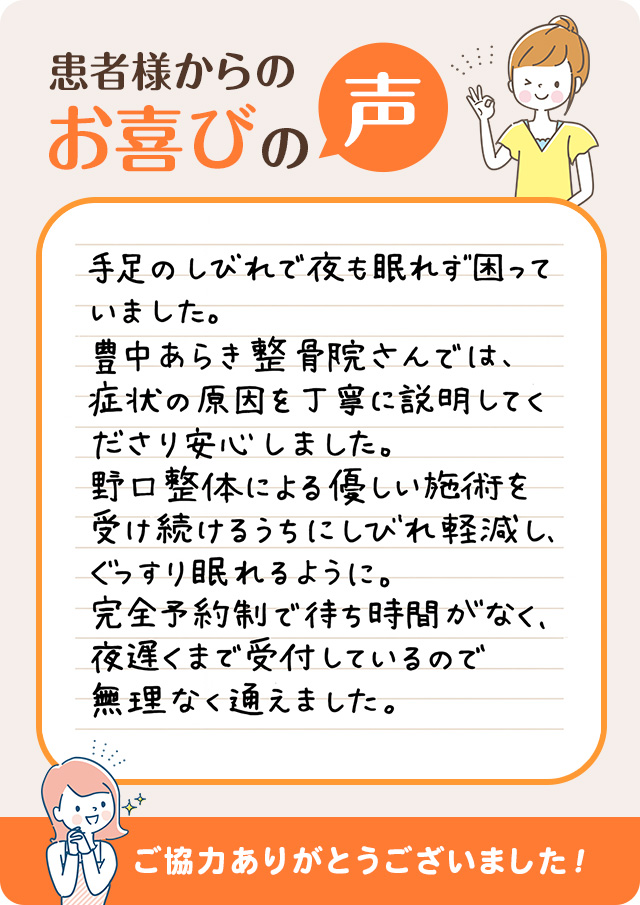 患者様からの
お喜びの声
手足のしびれで夜も眠れず困って
いました。
豊中あらき整骨院さんでは、
症状の原因を丁寧に説明してく
ださり安心しました。
野口整体による優しい施術を
受け続けるうちにしびれ軽減し、
ぐっすり眠れるように。
完全予約制で待ち時間がなく、
夜遅くまで受付しているので
無理なく通えました。
ご協力ありがとうございました!